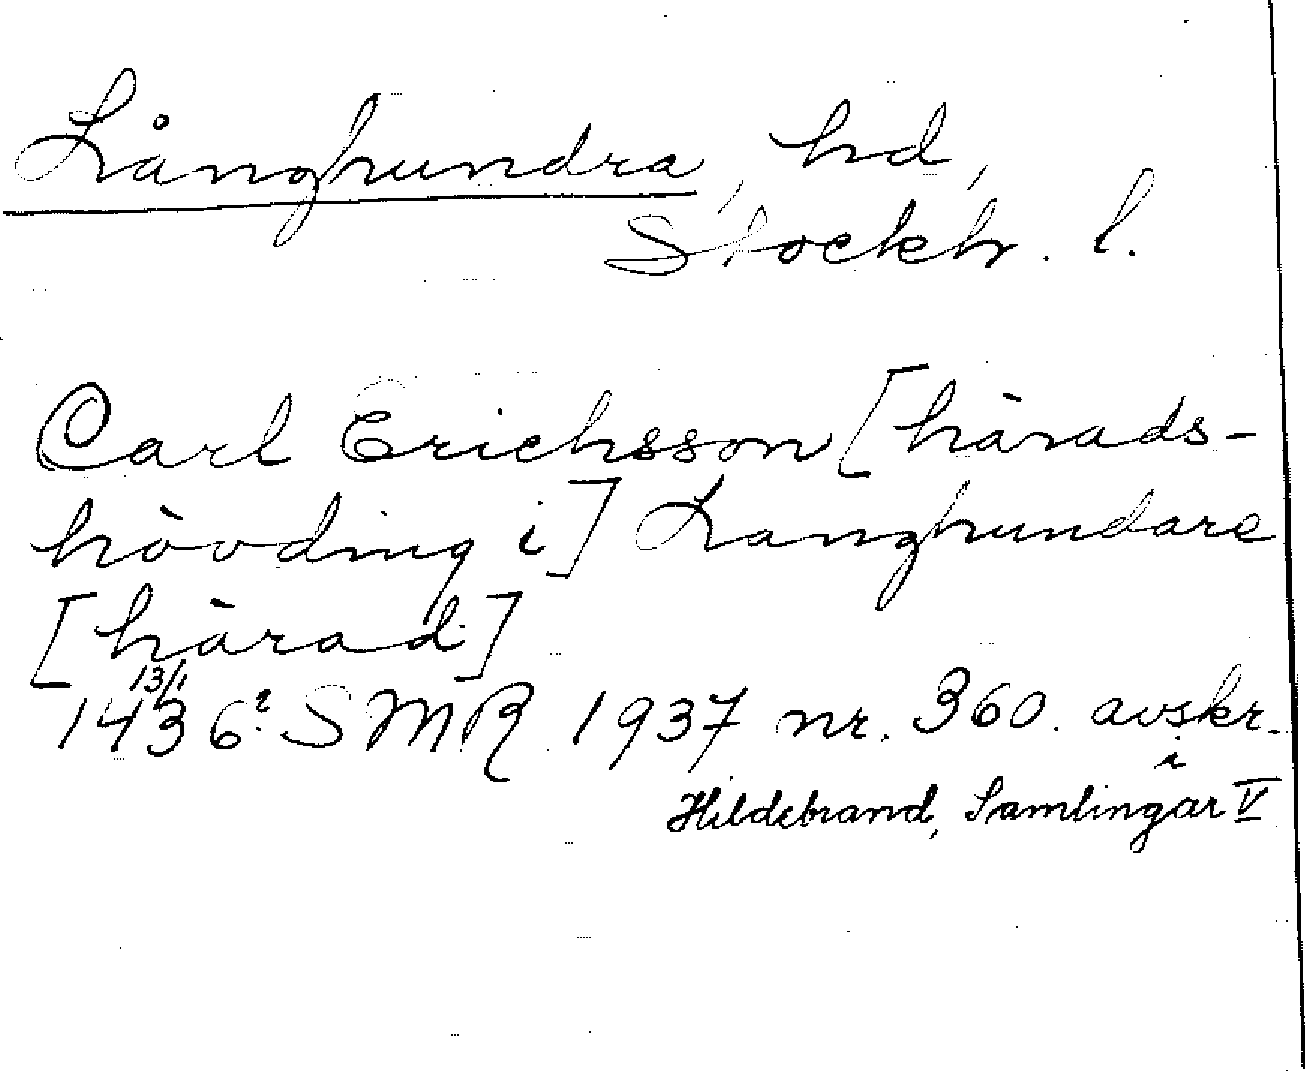 Långhundra, hd,
Stockh. l.
Carl Erichsson [härads-
hövding i] Langhundare
[härad]
13/1
1436? SMR 1937 nr. 360. avskr.
i
Hildebrand, Samlingar V